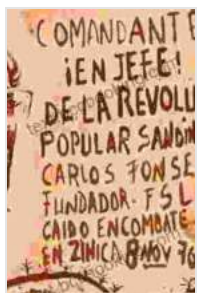 COMANDANTE
¡EN JEFE!
DE LA REVOLU
POPULAR SANDIN
CARLOS FONSE
FUNDADOR. FSL
CAIDO EN COMBATE
EN ZINICA 8 NOV 76